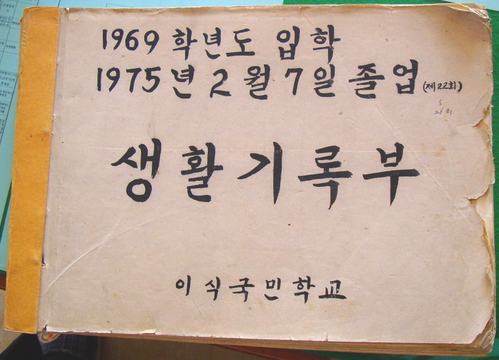 1969 학년도 입학
1975년 2월 7일 졸업 (제22회)
생활기록부
이식국민학교